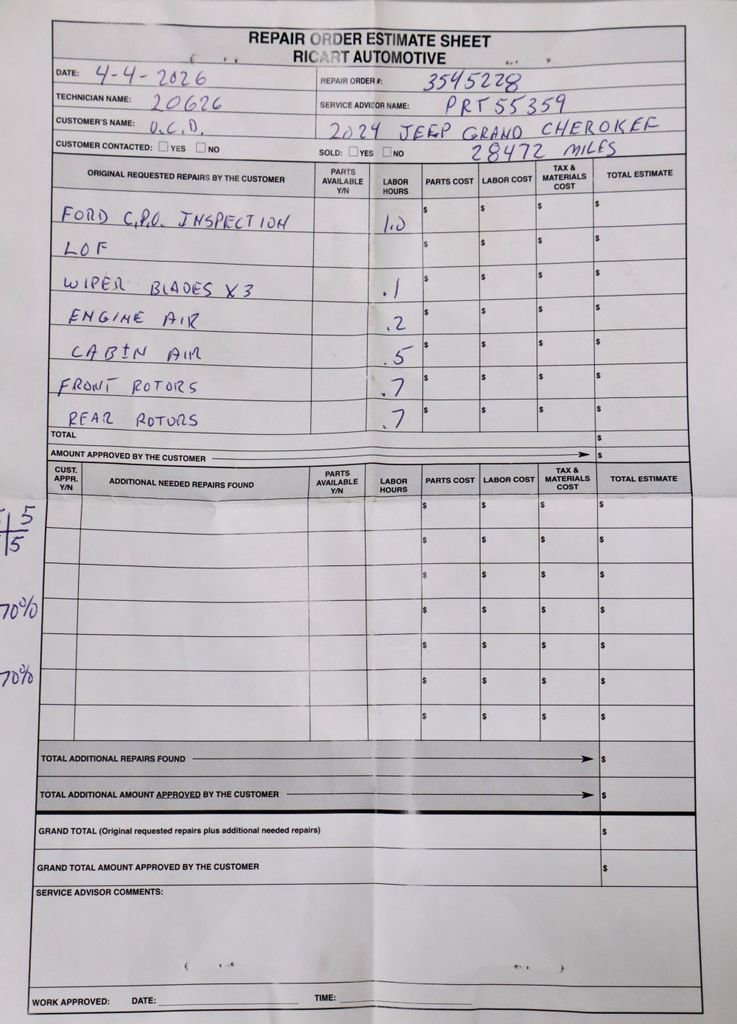 REPAIR ORDER ESTIMATE SHEET
RICART AUTOMOTIVE
DATE: 4-4-2026 REPAIR ORDER #: 3545228
TECHNICIAN NAME: 20626 SERVICE ADVISOR NAME: PRT55359
CUSTOMER'S NAME: U.C.D. 2024 JEEP GRAND CHEROKEE
CUSTOMER CONTACTED: YES NO SOLD: YES NO 28472 MILES
ORIGINAL REQUESTED REPAIRS BY THE CUSTOMER PARTS AVAILABLE Y/N LABOR HOURS PARTS COST LABOR COST TAX & MATERIALS COST TOTAL ESTIMATE
FORD C.P.O. INSPECTION 1.0 $ $ $ $
LOF $ $ $ $
WIPER BLADES X3 .1 $ $ $ $
ENGINE AIR .2 $ $ $ $
CABIN AIR .5 $ $ $ $
FRONT ROTORS .7 $ $ $ $
REAR ROTORS .7 $ $ $ $
TOTAL $
AMOUNT APPROVED BY THE CUSTOMER $
CUST. APPR. Y/N ADDITIONAL NEEDED REPAIRS FOUND PARTS AVAILABLE Y/N LABOR HOURS PARTS COST LABOR COST TAX & MATERIALS COST TOTAL ESTIMATE
$ $ $ $
5
$ $ $ $
5
$ $ $ $
70% $ $ $ $
$ $ $ $
70% $ $ $ $
$ $ $ $
TOTAL ADDITIONAL REPAIRS FOUND $
TOTAL ADDITIONAL AMOUNT APPROVED BY THE CUSTOMER $
GRAND TOTAL (Original requested repairs plus additional needed repairs) $
GRAND TOTAL AMOUNT APPROVED BY THE CUSTOMER $
SERVICE ADVISOR COMMENTS:
WORK APPROVED: DATE: TIME: